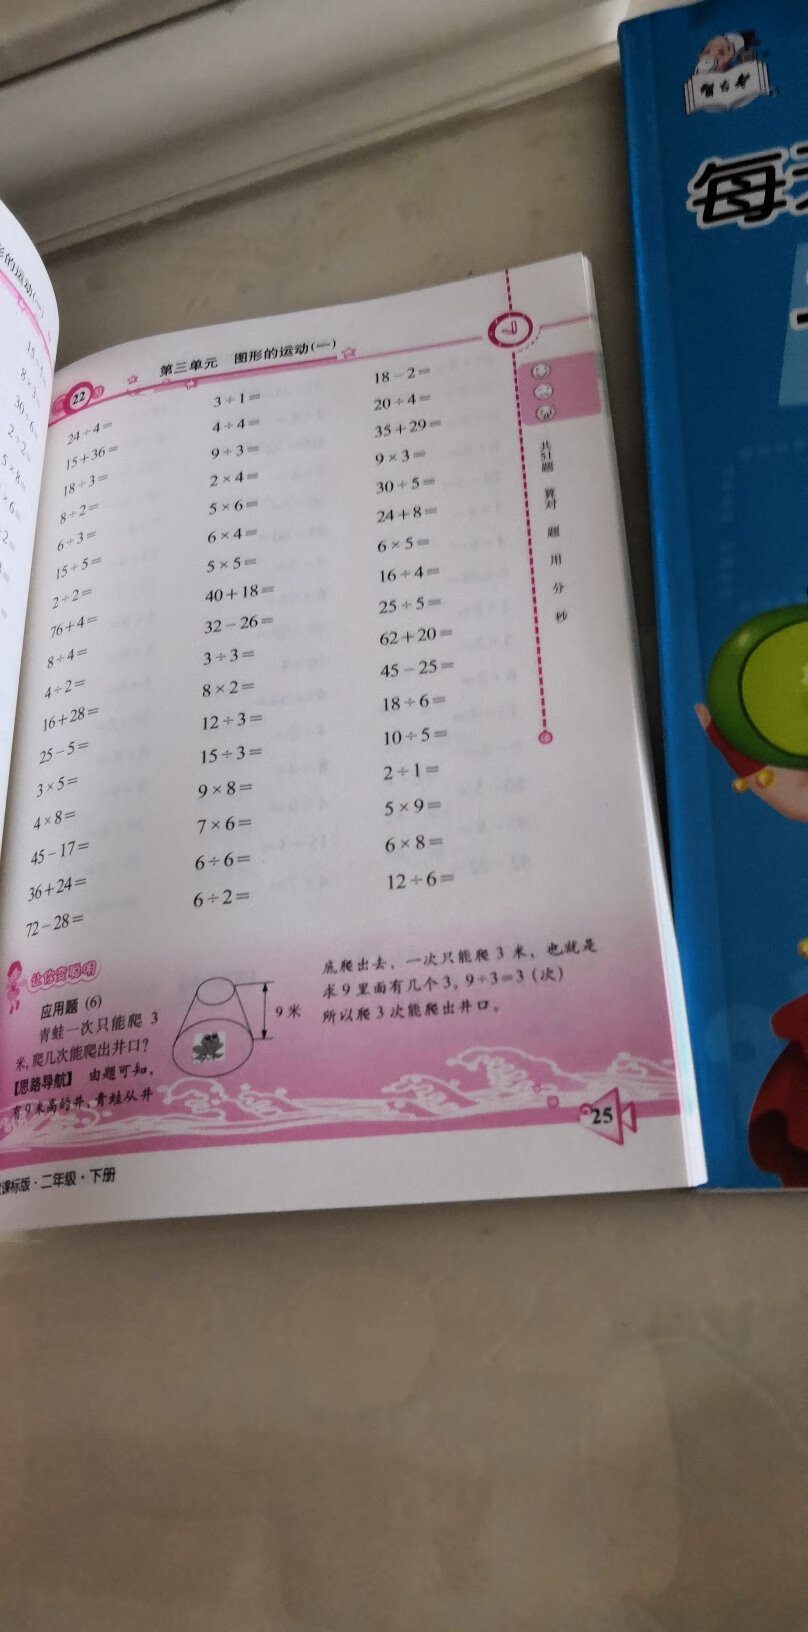 形的运动(一)
22
第三单元 图形的运动(一)
24÷4=
15+36=
18÷3=
8÷2=
6÷3=
15÷5=
2÷2=
76+4=
8÷4=
4÷2=
16+28=
25-5=
3×5=
4×8=
45-17=
36+24=
72-28=
3÷1=
4÷4=
9÷3=
2×4=
5×6=
6×4=
5×5=
40+18=
32-26=
3÷3=
8×2=
12÷3=
15÷3=
9×8=
7×6=
6÷6=
6÷2=
18-2=
20÷4=
35+29=
9×3=
30÷5=
24+8=
6×5=
16÷4=
25÷5=
62+20=
45-25=
18÷6=
10÷5=
2÷1=
5×9=
6×8=
12÷6=
共51题 算对 题 用 分 秒
让你变聪明
应用题 (6)
青蛙一次只能爬 3
米,爬几次能爬出井口?
【思路导航】 由题可知,
有9米高的井,青蛙从井
9米
底爬出去，一次只能爬 3 米，也就是
求 9 里面有几个 3。9÷3=3 (次)
所以爬 3 次能爬出井口。
25
课标版·二年级·下册
每